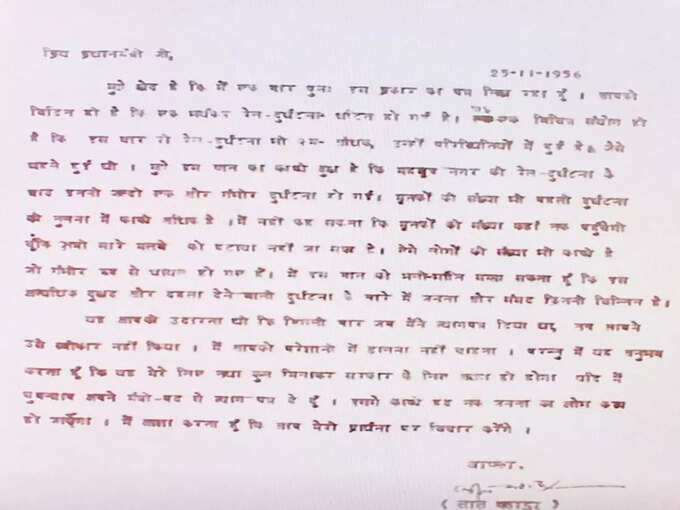 प्रिय प्रधानमंत्री जी,
25-11-1956
मुझे खेद है कि मैं एक बार पुनः इस प्रकार का पत्र लिख रहा हूँ । आपको
विदित ही है कि एक भयंकर रेल-दुर्घटना घटित हो गई है। एक विचित्र संयोग ही
है कि इस बार रेल-दुर्घटना भी उन्हीं परिस्थितियों में हुई है, जैसे
पहले हुई थी । मुझे इस बात का काफी दुख है कि महबूब नगर की रेल-दुर्घटना के
बाद इतनी जल्दी एक और गंभीर दुर्घटना हो गई। मृतकों की संख्या भी पहली दुर्घटना
की तुलना में काफी अधिक है । मैं नहीं कह सकता कि मृतकों की संख्या कहाँ तक पहुँचेगी
चूँकि अभी सारे मलबे को हटाया नहीं जा सका है। ऐसे लोगों की संख्या भी काफी है
जो गंभीर रूप से घायल हो गए हैं। मैं इस बात को भली-भाँति समझ सकता हूँ कि इस
अत्यधिक दुखद और दहला देने वाली दुर्घटना के बारे में जनता और संसद कितनी चिन्तित है।
यह आपकी उदारता थी कि पिछली बार जब मैंने त्यागपत्र दिया था, तब आपने
उसे स्वीकार नहीं किया । मैं आपको परेशानी में डालना नहीं चाहता । परन्तु मैं यह अनुभव
करता हूँ कि यह मेरे लिए तथा कुल मिलाकर सरकार के लिए अच्छा ही होगा यदि मैं
चुपचाप अपने मंत्री-पद से त्याग पत्र दे दूँ । इससे काफी हद तक जनता का क्षोभ कम
हो जाएगा । मैं आशा करता हूँ कि आप मेरी प्रार्थना पर विचार करेंगे ।
आपका,
( लाल बहादुर )